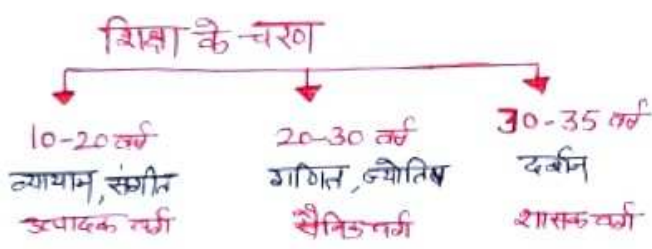 शिक्षा के चरण
10-20 वर्ष
व्यायाम, संगीत
उत्पादक वर्ग
20-30 वर्ष
गणित, ज्योतिष
सैनिक वर्ग
30-35 वर्ष
दर्शन
शासक वर्ग